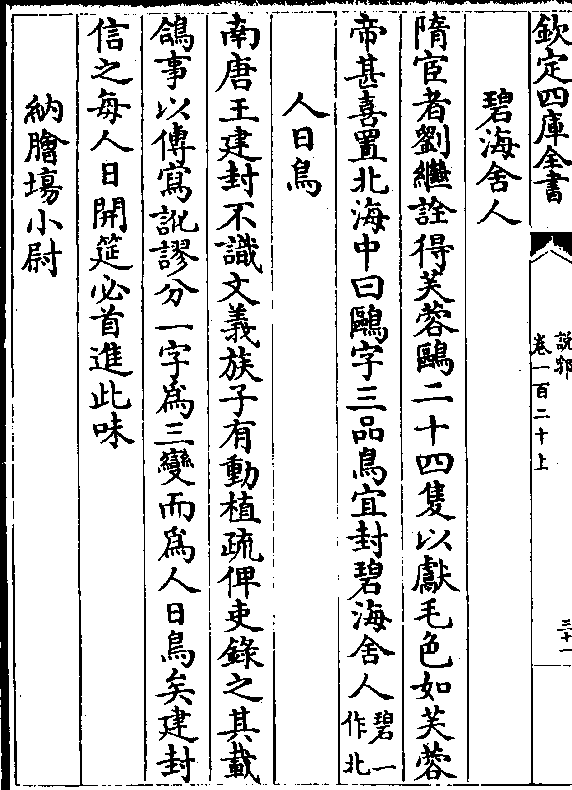 欽定四庫全書
說郛
卷一百二十上
三十一
碧海舍人
隋宦者劉繼詮得芙蓉鷗二十四隻以獻毛色如芙蓉
帝甚喜置北海中曰鷗字三品鳥宜封碧海舍人碧一作北
人日鳥
南唐王建封不識文義族子有動植疏俾吏錄之其載
鴿事以傳寫訛謬分一字為三變而為人日鳥矣建封
信之每人日開筵必首進此味
納膾塲小尉